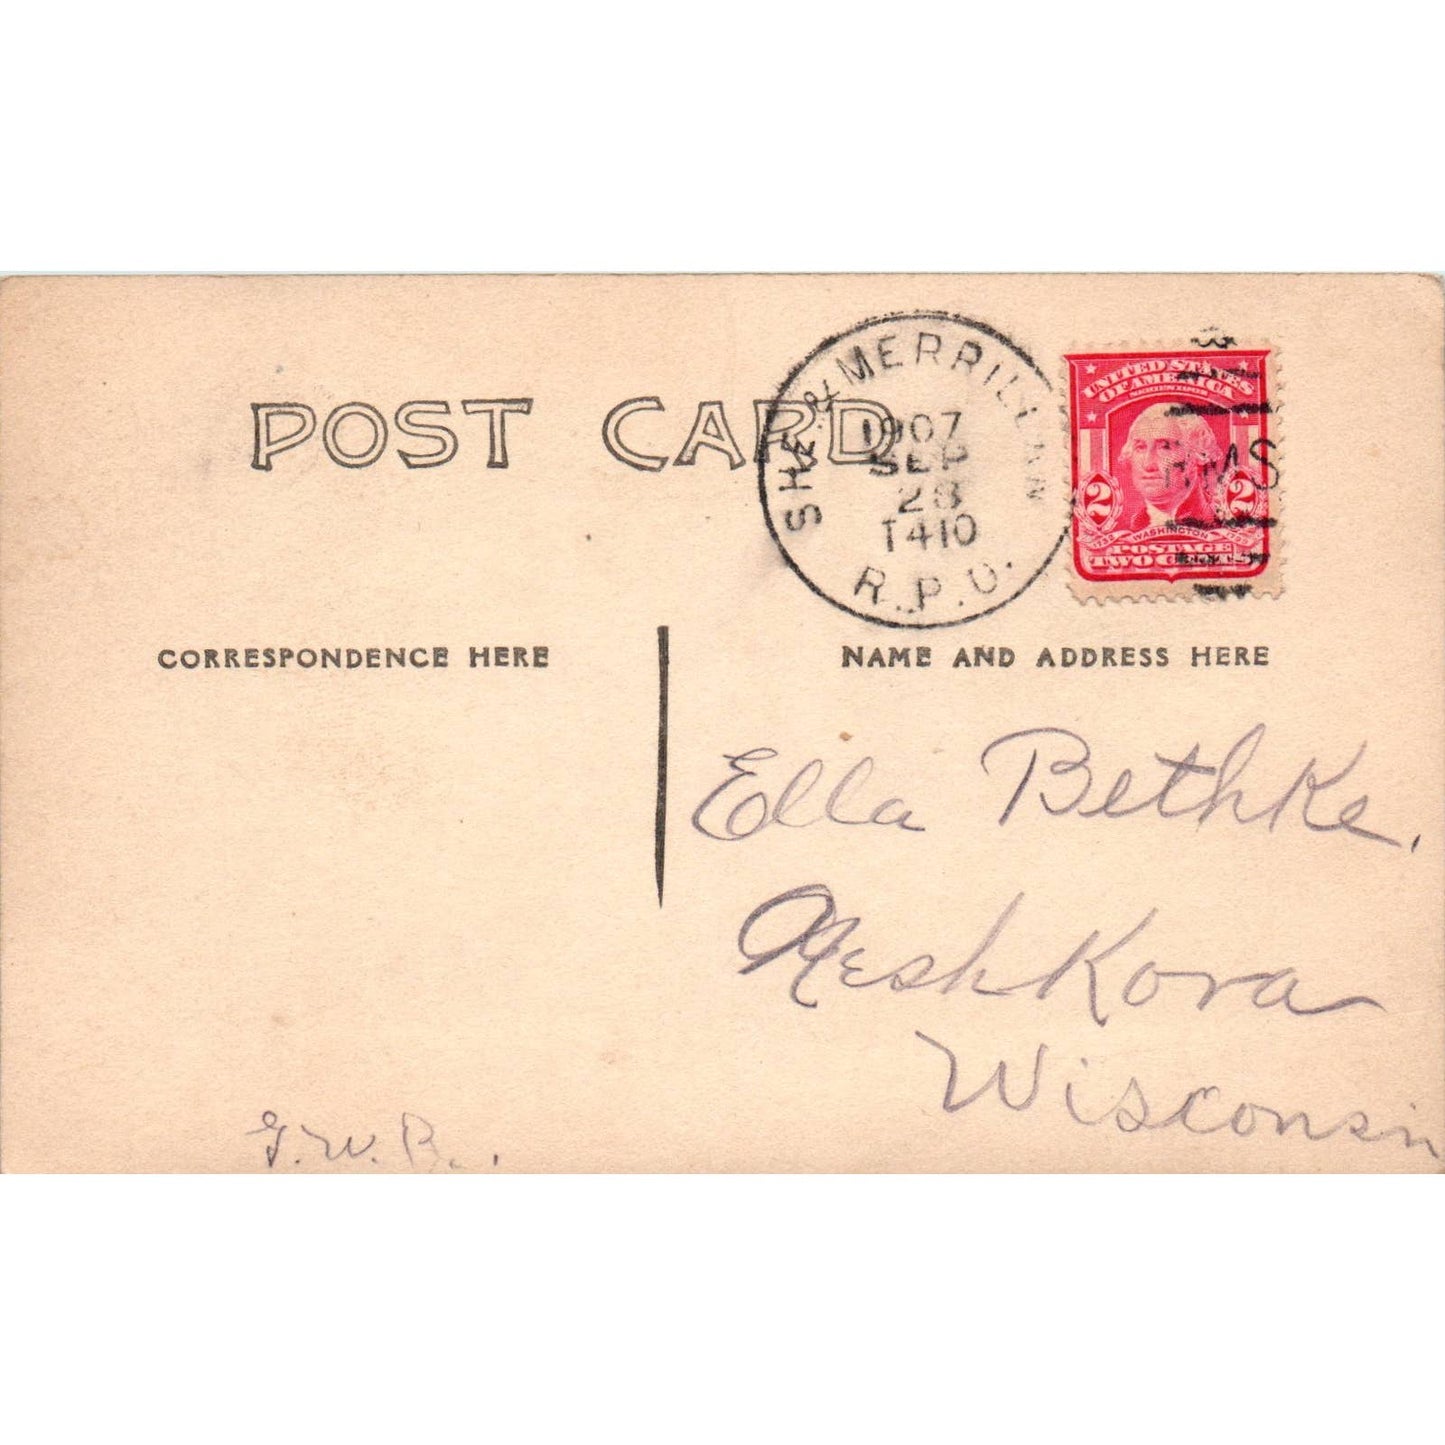 POST CARD
SHE. & MERRILLAN
1907
SEP
28
T410
R.P.O.
UNITED STATES
OF AMERICA
2 2
1732 WASHINGTON 1799
POSTAGE
TWO CENTS
RMS
CORRESPONDENCE HERE
NAME AND ADDRESS HERE
Ella Bethke,
NeshKora
Wisconsin
G.W.B.